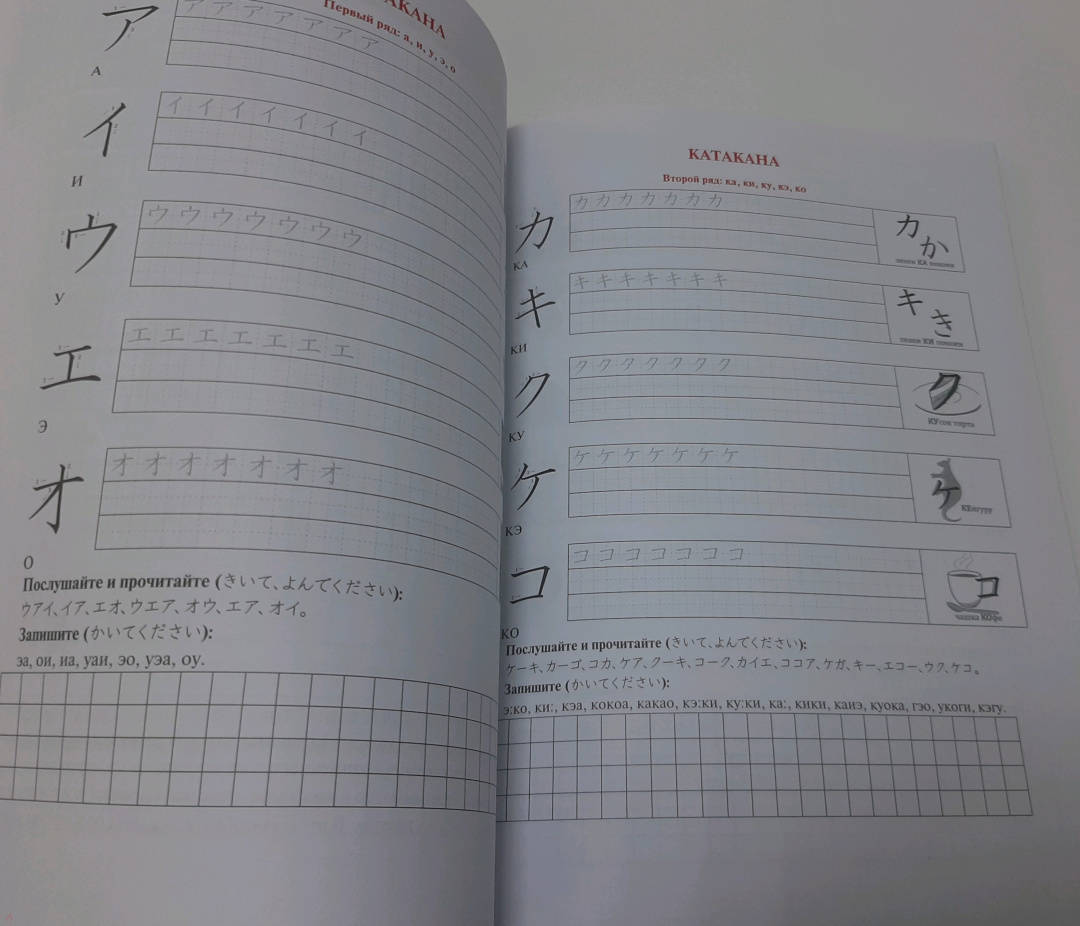 КАТАКАНА
Первый ряд: а, и, у, э, о
ア ア ア ア ア ア ア ア
А
イ イ イ イ イ イ イ イ
И
ウ ウ ウ ウ ウ ウ ウ ウ
У
エ エ エ エ エ エ エ エ
Э
オ オ オ オ オ オ オ オ
О
Послушайте и прочитайте (きいて、よんでください):
ウアイ、イア、エオ、ウエア、オウ、エア、オイ。
Запишите (かいてください):
эа, ои, иа, уаи, эо, уэа, оу.
КАТАКАНА
Второй ряд: ка, ки, ку, кэ, ко
カ カ カ カ カ カ カ カ カ か
КА
キ キ キ キ キ キ キ キ キ き
КИ
ク ク ク ク ク ク ク ク ク
КУсок торта
КУ
ケ ケ ケ ケ ケ ケ ケ ケ ケ
КЕнгуру
КЭ
コ コ コ コ コ コ コ コ コ
чашка КОфе
КО
Послушайте и прочитайте (きいて、よんでください):
ケーキ、カーゴ、コカ、ケア、クーキ、コーク、カイエ、ココア、ケガ、キー、エコー、ウク、ケコ。
Запишите (かいてください):
э:ко, ки:, кэа, кокоа, какао, кэ:ки, ку:ки, ка:, кики, каиэ, куока, гэо, укоги, кэгу.